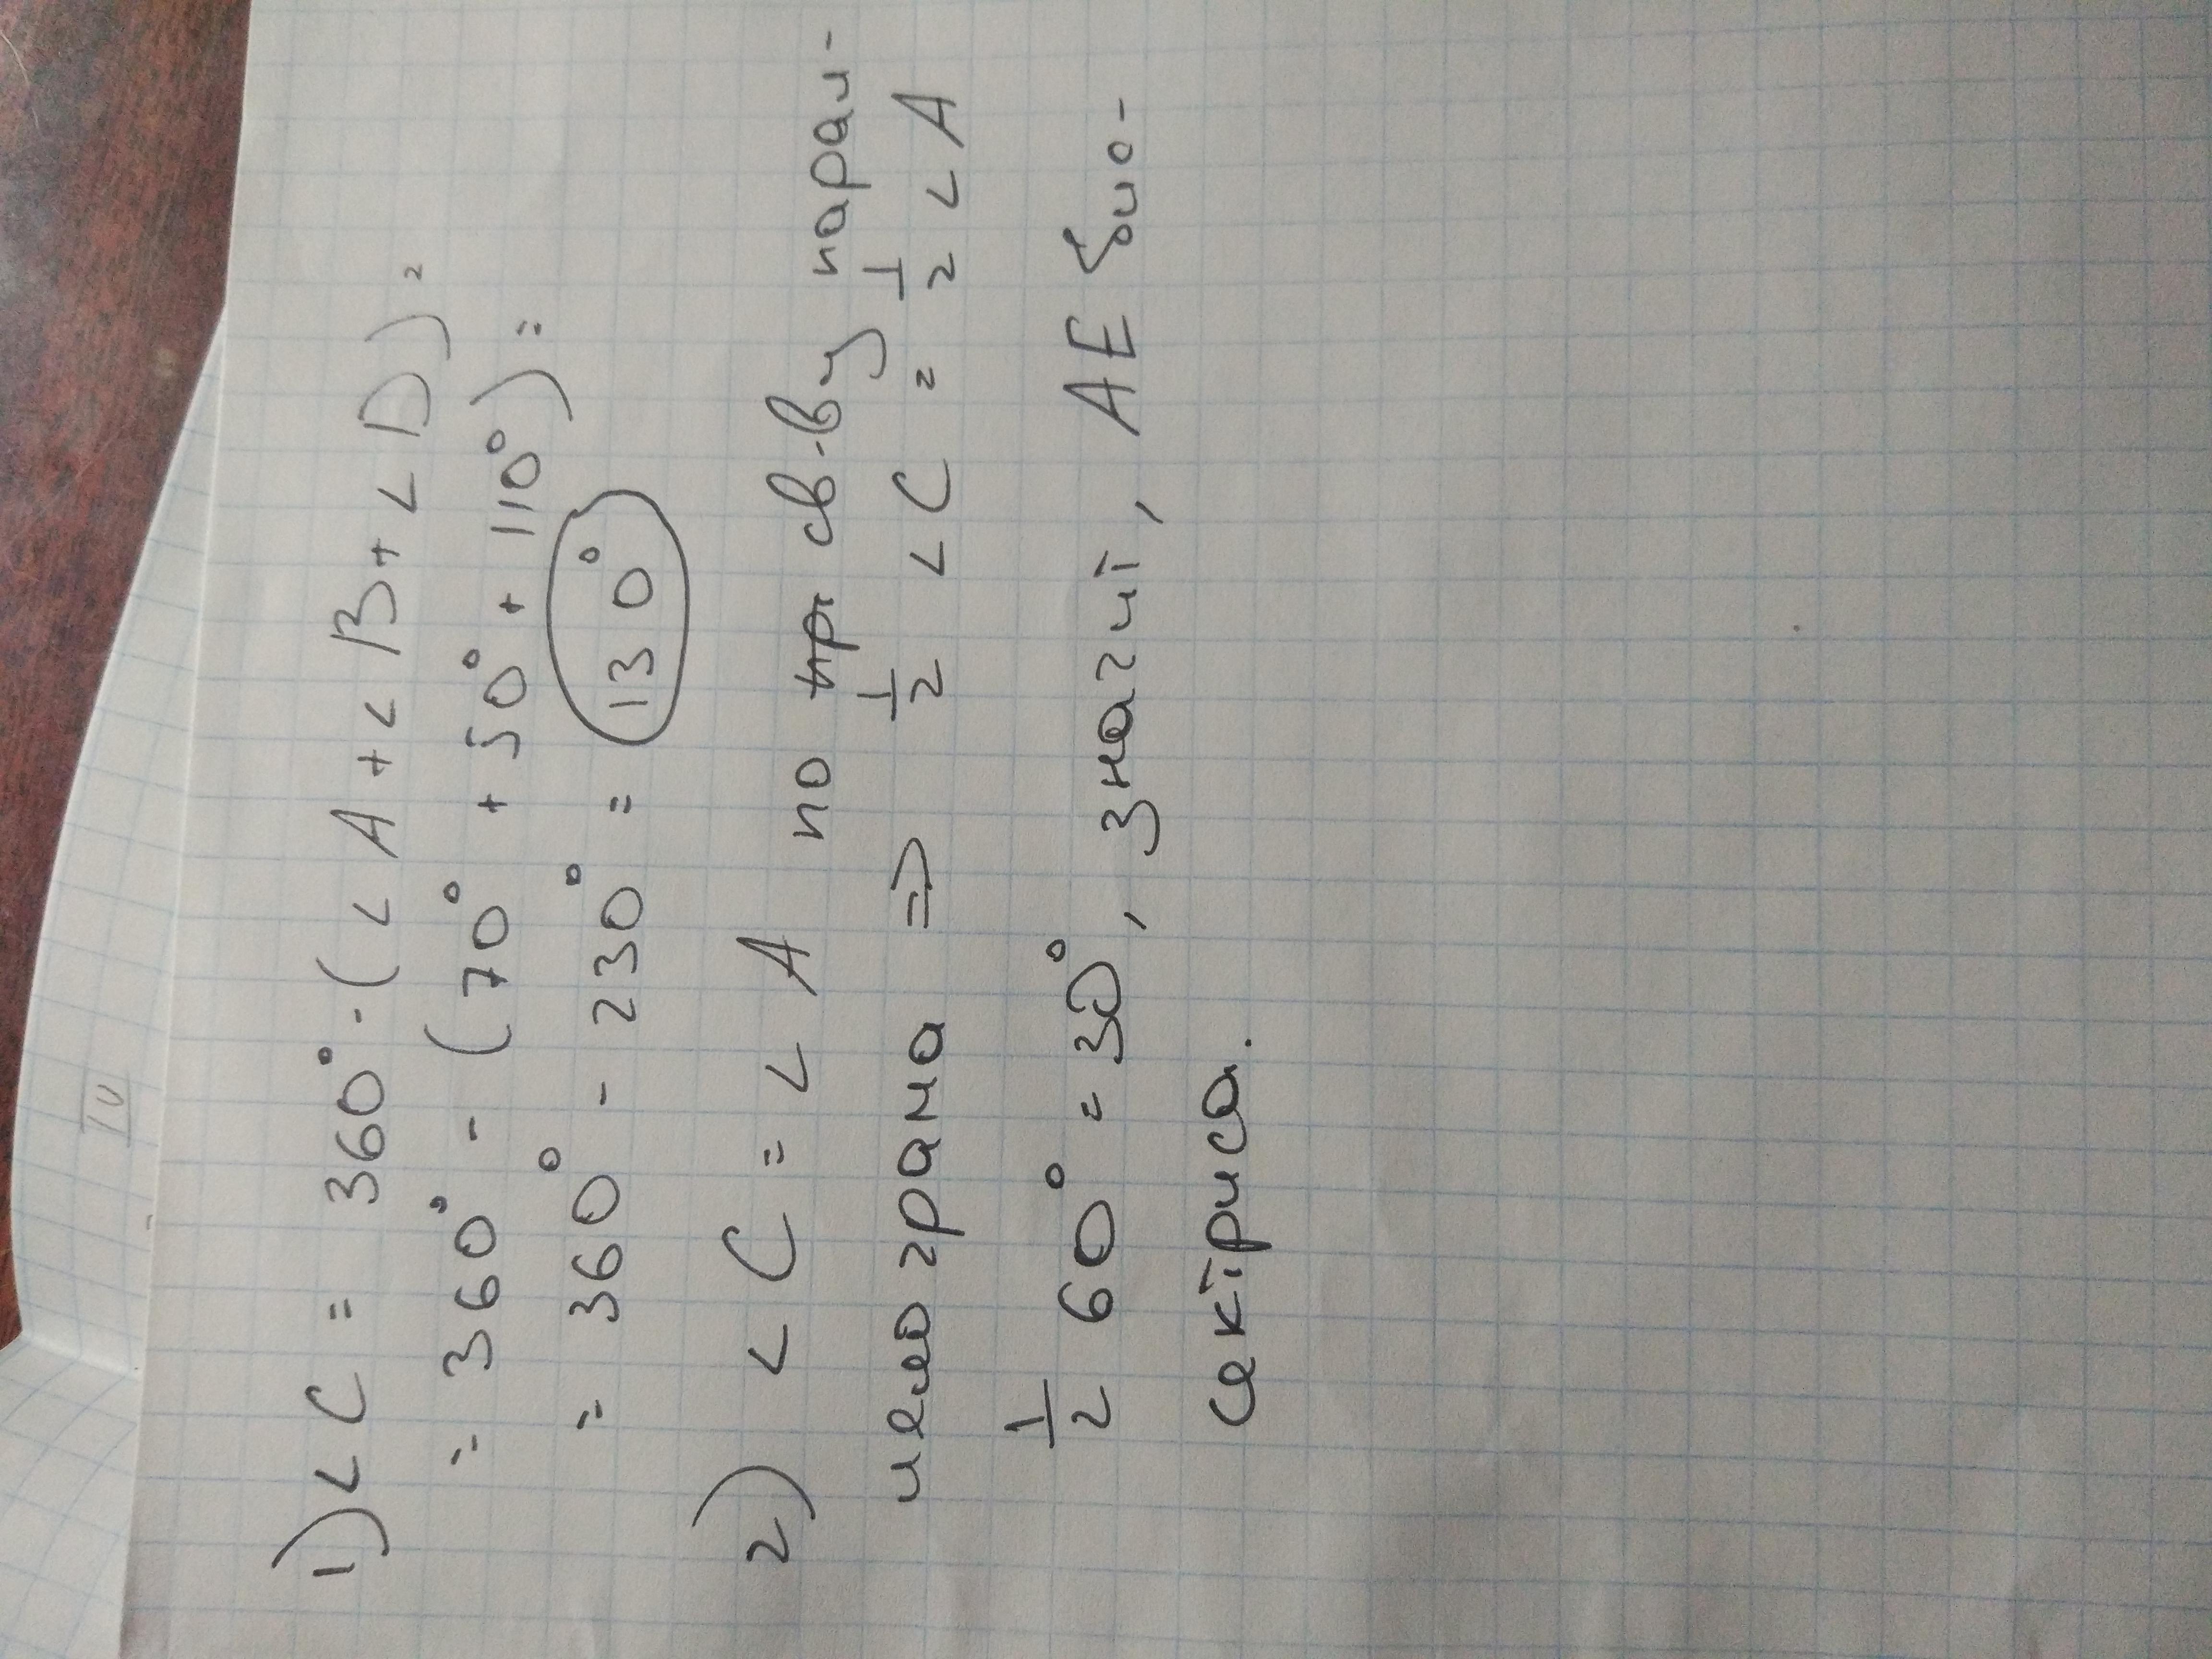 IV
1) ∠C = 360° - (∠A + ∠B + ∠D) =
= 360° - (70° + 50° + 110°) =
= 360° - 230° = 130°
2) ∠C = ∠A по св-ву парал-
лелограма => 1/2 ∠C = 1/2 ∠A
1/2 60° = 30°, значит, AE бис-
сектриса.